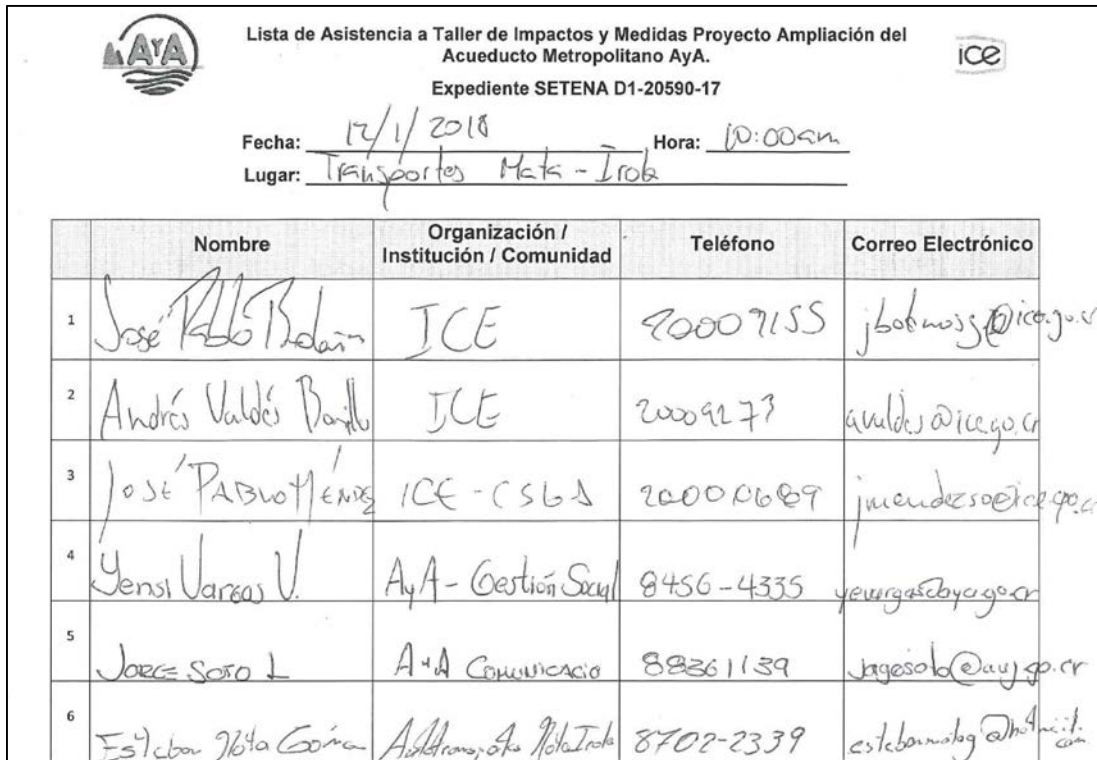 AYA
Lista de Asistencia a Taller de Impactos y Medidas Proyecto Ampliación del
Acueducto Metropolitano AyA.
ice
Expediente SETENA D1-20590-17
Fecha: 12/1/2018 Hora: 10:00am
Lugar: Transportes Mata - Irola
Nombre Organización / Institución / Comunidad Teléfono Correo Electrónico
1 José Pablo ICE 20009155
2 Andrés Valdés ICE 20009273 avaldes@ice.go.cr
3 José PABLO MÉNDEZ ICE - jmendezso@ice.go.cr
4 Yensi Vargas V. AyA - Gestión Social 8456-4335
5 JORGE SOTO L AyA Comunicacio 88361139
6 Esteban Mata 8702-2339 estebanmatag@hotmail.com